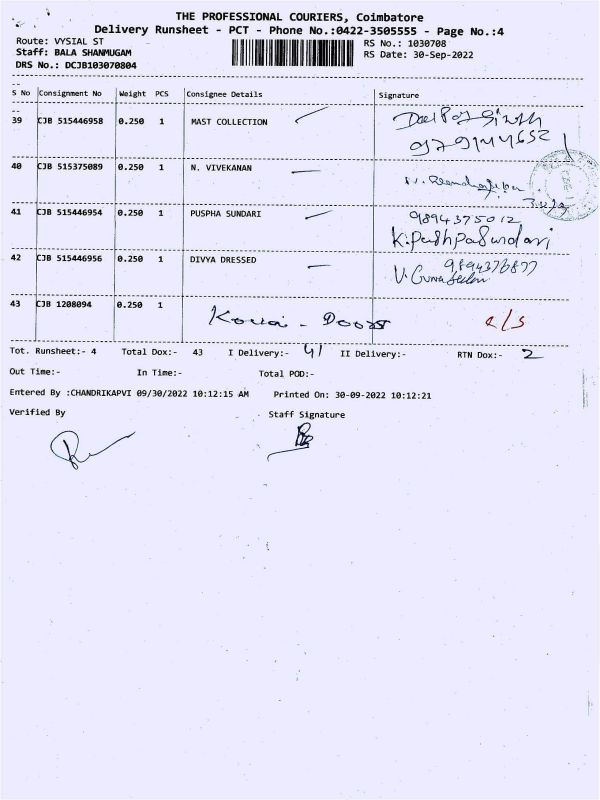 THE PROFESSIONAL COURIERS, Coimbatore
Delivery Runsheet - PCT - Phone No.:0422-3505555 - Page No.:4
Route: VYSIAL ST RS No.: 1030708
Staff: BALA SHANMUGAM RS Date: 30-Sep-2022
DRS No.: DCJB103070804
S No Consignment No Weight PCS Consignee Details Signature
39 CJB 515446958 0.250 1 MAST COLLECTION
9791144652
40 CJB 515375089 0.250 1 N. VIVEKANAN
41 CJB 515446954 0.250 1 PUSPHA SUNDARI 9894375012
K. PushpaSundari
42 CJB 515446956 0.250 1 DIVYA DRESSED
43 CJB 1208094 0.250 1 Kovai - Doors
Tot. Runsheet:- 4 Total Dox:- 43 I Delivery:- 41 II Delivery:- RTN Dox:- 2
Out Time:- In Time:- Total POD:-
Entered By :CHANDRIKAPVI 09/30/2022 10:12:15 AM Printed On: 30-09-2022 10:12:21
Verified By Staff Signature